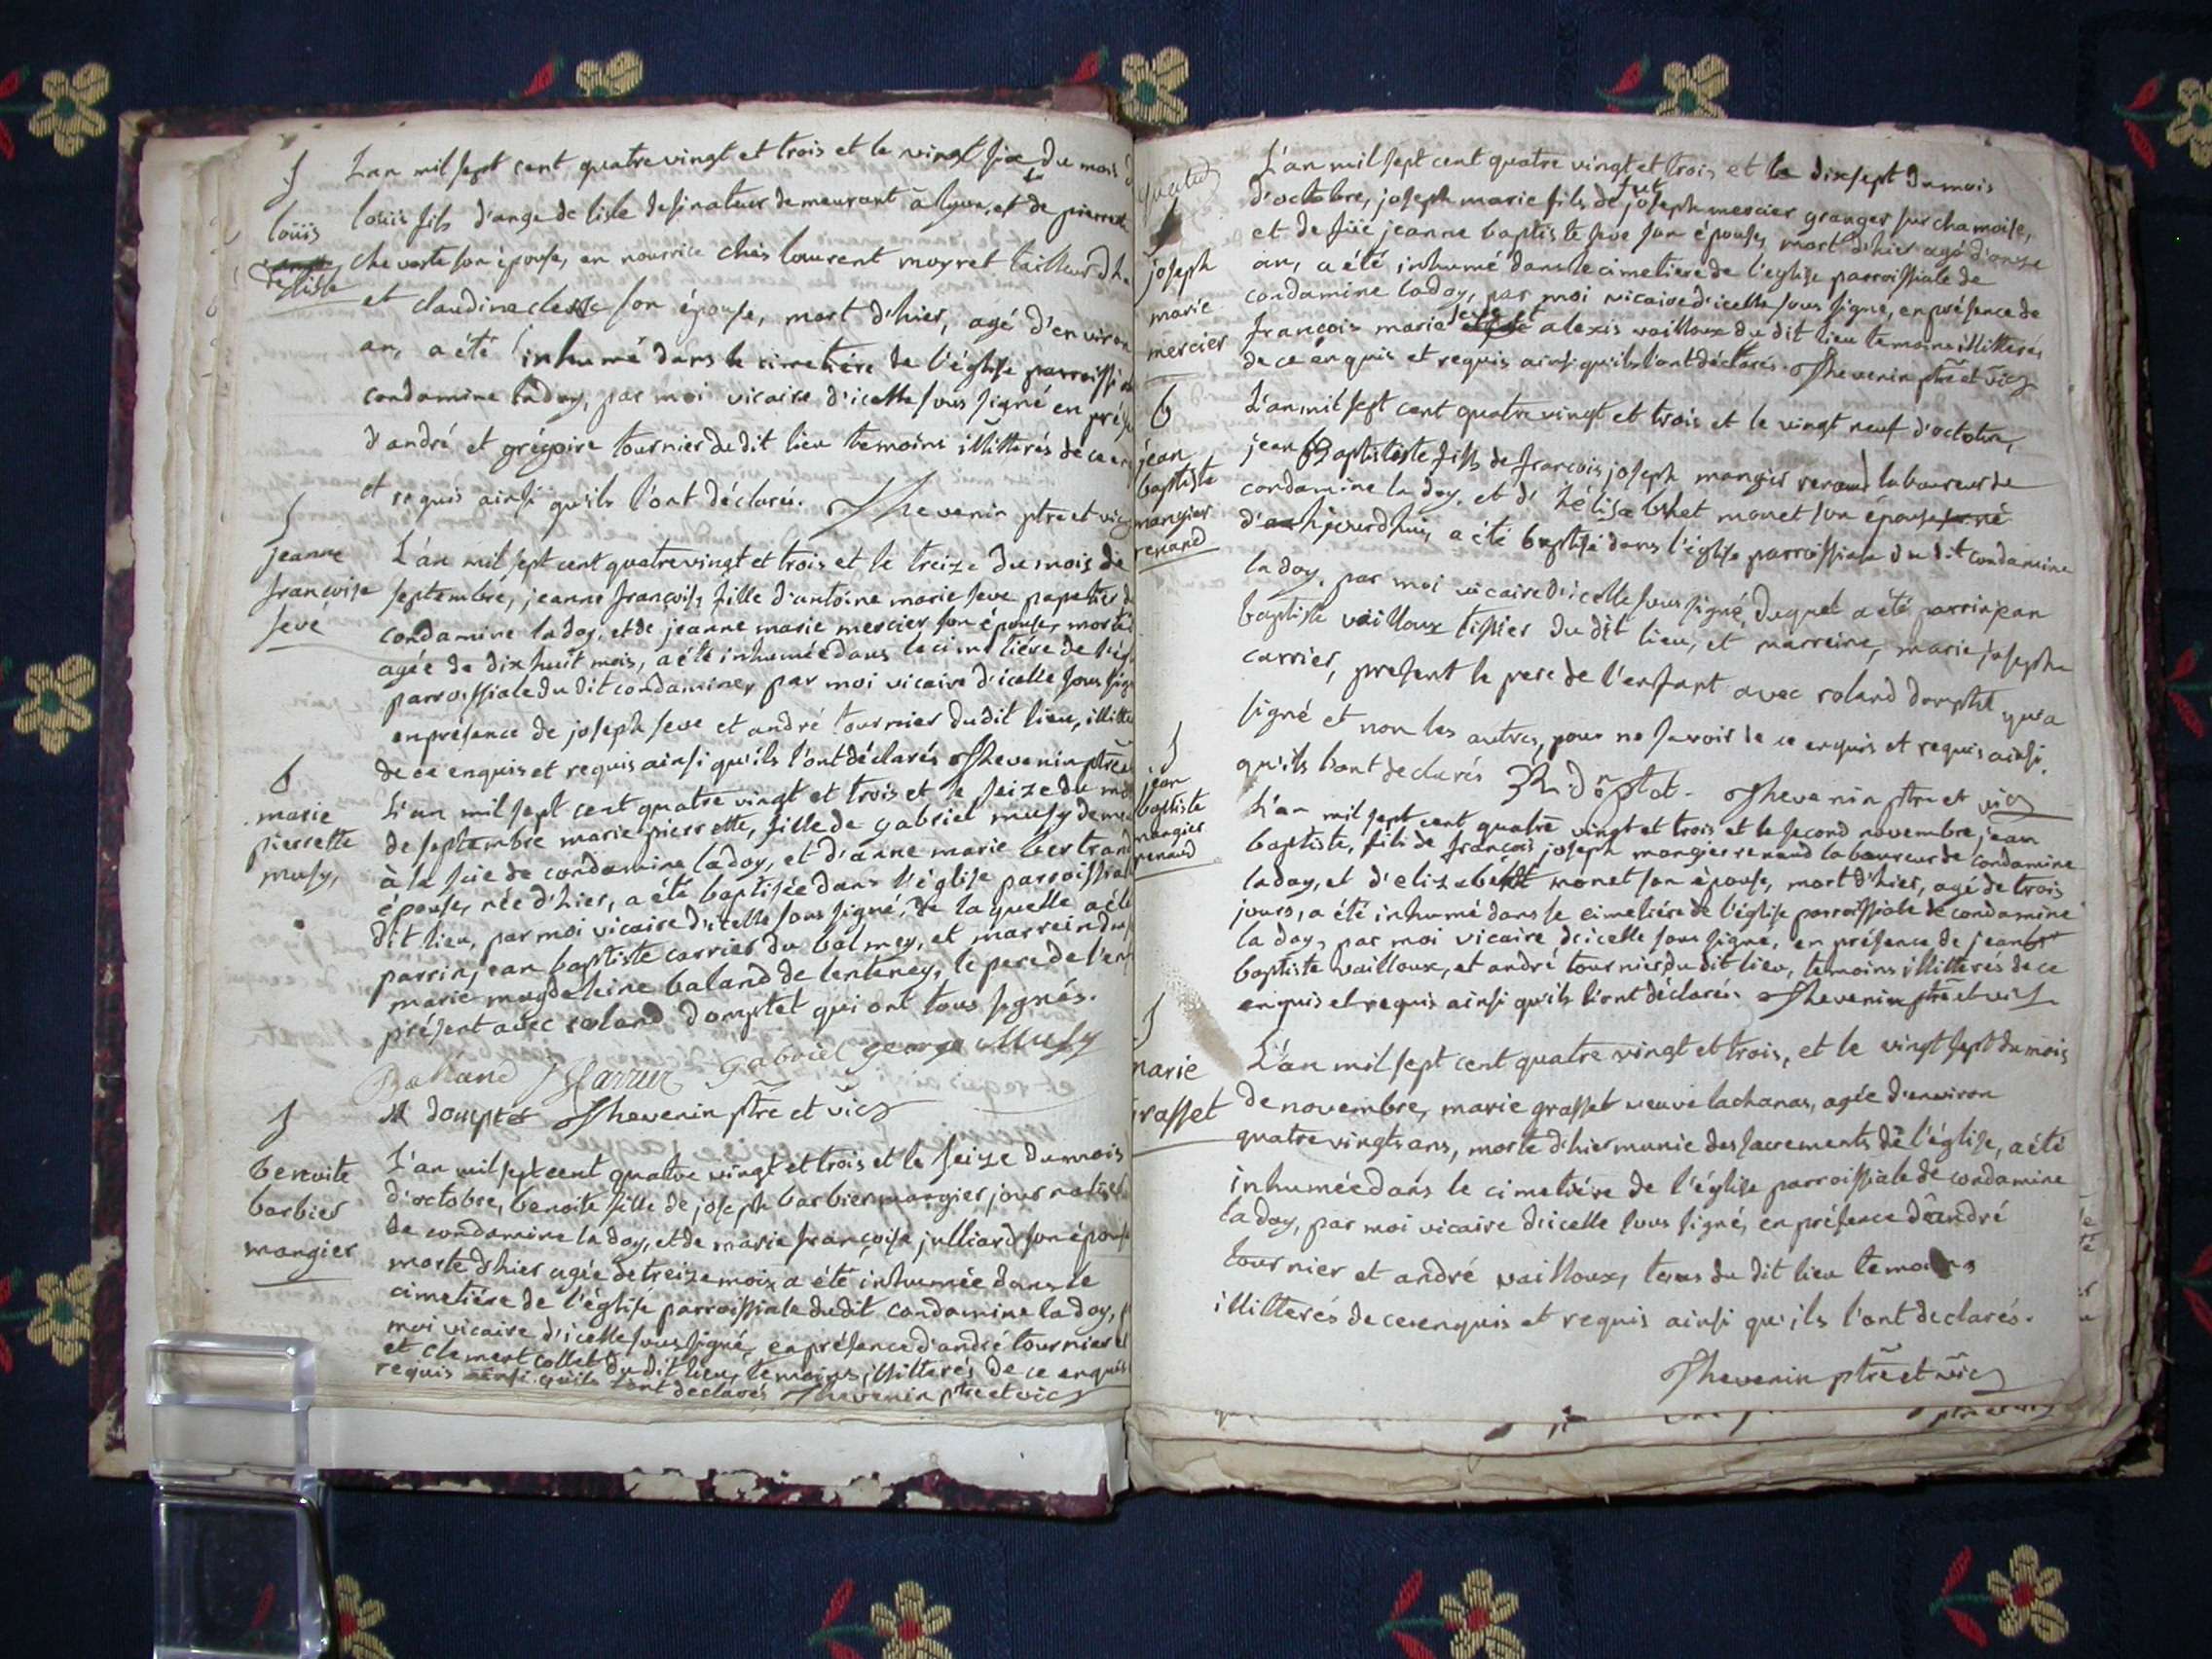 S
L'an mil sept cent quatre vingt et trois et le vingt six du mois
loüis
de lisle
loüis fils d'ange de lisle desinateur demeurant à lyon, et de pierrette
chevarte son épouse, en nourrice chés laurent moyret tailleur d'h
et claudine son épouse, mort d'hier, agé d'environ
an, a été inhumé dans le cimetière de l'église parroissi
condamine la doy, par moi vicaire d'icelle sous signé en prése
d'andré et grégoire tournier du dit lieu temoins illitterés de ce en
et requis ainsi qu'ils l'ont déclaré. Thevenin ptre et vic
S
jeanne
françoise
seve
L'an mil sept cent quatre vingt et trois et le treize du mois de
septembre, jeanne françoise fille d'antoine marie seve papetier d
condamine la doy, et de jeanne marie mercier son épouse, morte
agée de dix huit mois, a été inhumée dans le cimetiere de l'égl
parroissiale du dit condamine, par moi vicaire d'icelle sous sign
en présence de joseph seve et andré tournier du dit lieu, illitte
de ce enquis et requis ainsi qu'ils l'ont déclarés Thevenin ptre
b
marie
pierrette
musy,
L'an mil sept cent quatre vingt et trois et le seize du mo
de septembre marie pierrette, fille de gabriel musy deme
à la scie de condamine la doy, et d'anne marie bertrand
épouse, née d'hier, a été baptisée dans l'église parroissial
dit lieu, par moi vicaire d'icelle sous signé, de laquelle a été
parrin jean baptiste carrier du balmey, et marrein du
marie magdeleine baland de lenteney, le pere de l'en
présent avec roland domptet qui ont tous signés.
Baland J Carrier gabriel george Musy
R domptet Thevenin ptre et vic
S
benoite
barbier
mangier
L'an mil sept cent quatre vingt et trois et le seize du mois
d'octobre, benoite fille de joseph barbier mangier journalier
de condamine la doy, et de marie françoise julliard son épouse
morte d'hier agée de treize mois a été inhumée dans le
cimetiére de l'église parroissiale du dit condamine la doy, p
moi vicaire d'icelle sous signé, en présence d'andré tournier et
et clement collet du dit lieu, temoins illitterés de ce enquis
requis ainsi qu'ils l'ont declarés Thevenin ptre et vic
joseph
marie
mercier
L'an mil sept cent quatre vingt et trois et le dix sept du mois
d'octobre, joseph marie fils de fut joseph mercier granger sur chamoise,
et de füe jeanne baptiste seve son épouse, mort d'hier agé d'onze
an, a été inhumé dans le cimetiere de l'eglise parroissiale de
condamine la doy, par moi vicaire d'icelle sous signé, en présence de
françois marie seve et alexis vailloux du dit lieu temoins illitterés,
de ce enquis et requis ainsi qu'ils l'ont déclarés. Thevenin ptre et vic
b
jean
baptiste
mangier
renaud
L'an mil sept cent quatre vingt et trois et le vingt neuf d'octobre,
jean Baptiste fils de francois joseph mangier renaud laboureur de
condamine la doy, et d' monet son épouse né
d'aujourdhui, a été baptisé dans l'église parroissiale du dit condamine
la doy, par moi vicaire d'icelle sous signé, duquel a été parrin jean
baptiste vailloux tissier du dit lieu, et marreine, marie josephe
carrier, present le pere de l'enfant avec roland dompte qui a
signé et non les autres, pour ne savoir de ce enquis et requis ainsi
qu'ils l'ont declarés R. Thevenin ptre et vic
S
jean
baptiste
mangier
renaud
L'an mil sept cent quatre vingt et trois et le second novembre, jean
baptiste, fils de françois joseph mangier renaud laboureur de condamine
la doy, et d'elizabeht monet son épouse, mort d'hier, agé de trois
jours, a été inhumé dans le cimetiére de l'église parroissiale de condamine
la doy, par moi vicaire d'icelle sous signé, en présence de jean
baptiste vailloux, et andré tournier du dit lieu, temoins illitterés de ce
enquis et requis ainsi qu'ils l'ont déclarés. Thevenin ptre et vic
S
marie
grasset
L'an mil sept cent quatre vingt et trois, et le vingt sept du mois
de novembre, marie grasset veuve lachanas, agée d'environ
quatre vingts ans, morte d'hier munie des sacrements de l'église, a été
inhumée dans le cimetiére de l'église parroissiale de condamine
la doy, par moi vicaire d'icelle sous signé, en présence d'andré
tournier et andré vailloux, tous du dit lieu temoins
illitterés de ce enquis et requis ainsi qu'ils l'ont declarés.
Thevenin ptre et vic